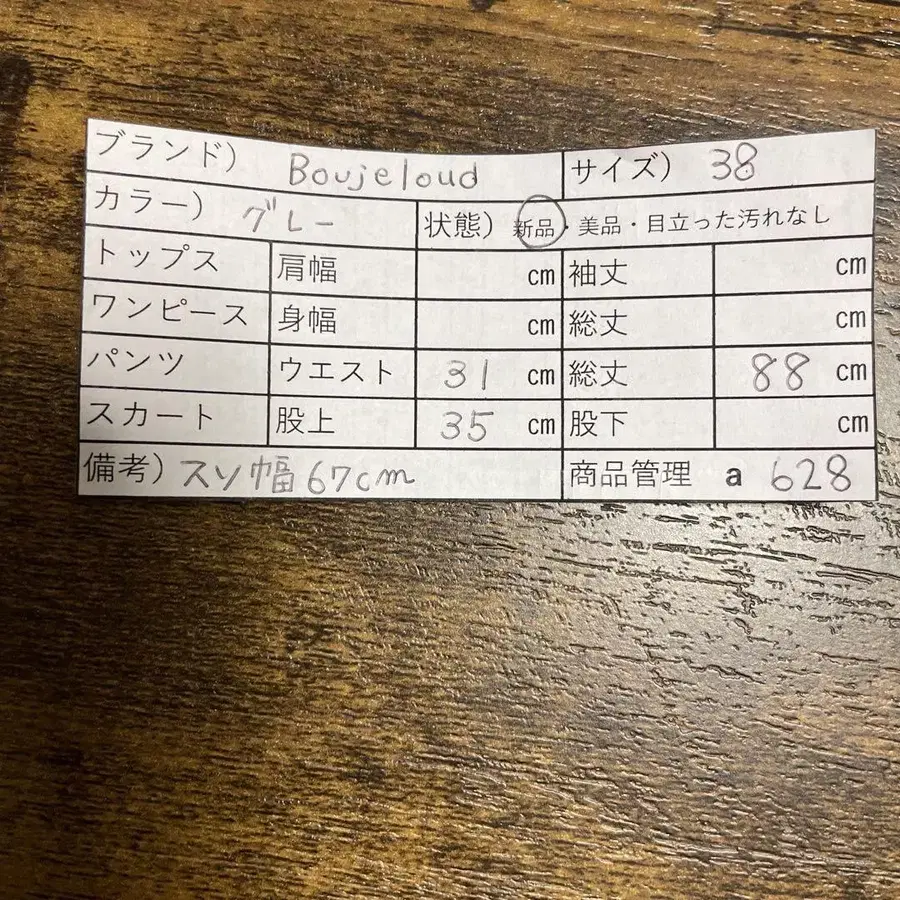 ブランド) Boujeloud サイズ) 38
カラー) グレー 状態) 新品・美品・目立った汚れなし
トップス 肩幅 cm 袖丈 cm
ワンピース 身幅 cm 総丈 cm
パンツ ウエスト 31 cm 総丈 88 cm
スカート 股上 35 cm 股下 cm
備考) スソ幅67cm 商品管理 a 628